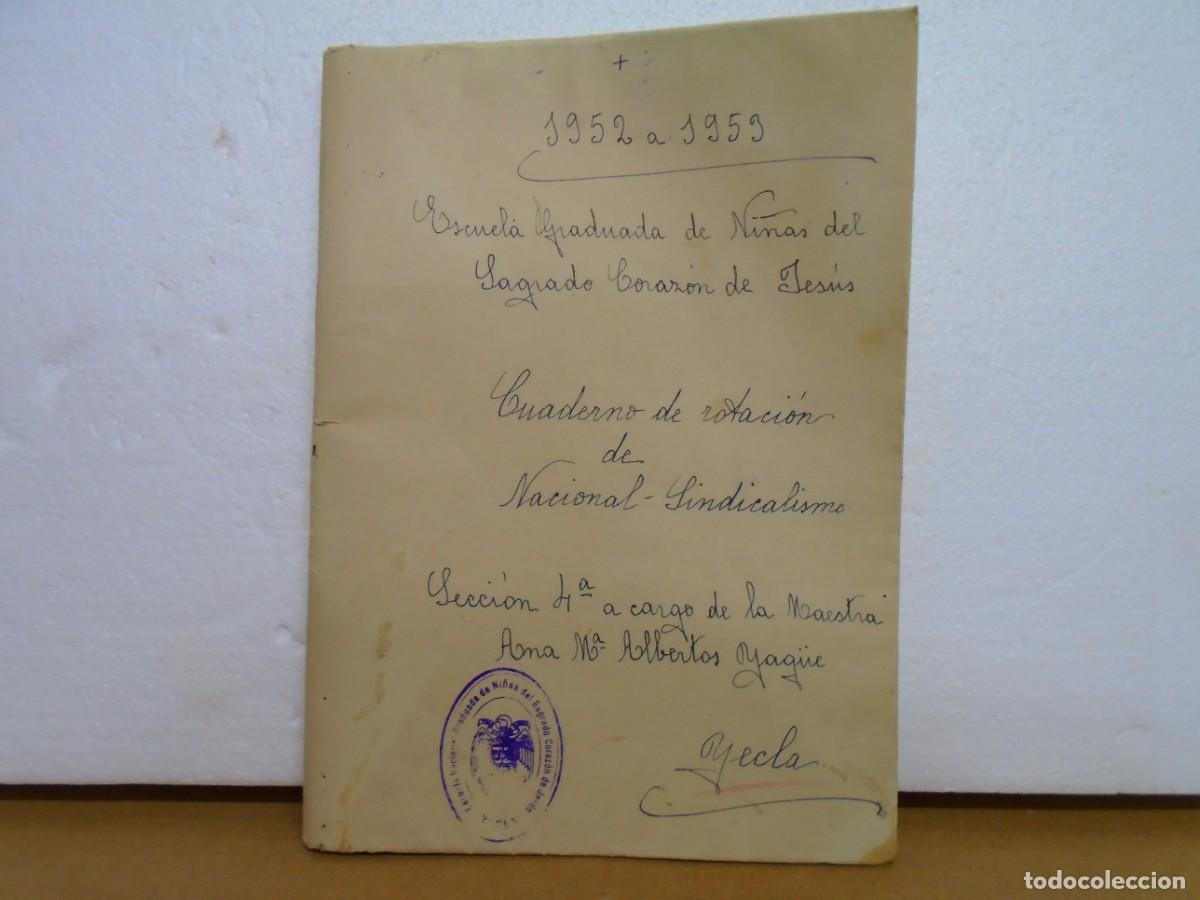 +
1952 a 1953
Escuela Graduada de Niñas del
Sagrado Corazón de Jesús
Cuaderno de rotación
de
Nacional-Sindicalismo
Sección 4ª a cargo de la Maestra
Ana Mª Albertos Yagüe
Graduada de Niñas del Sagrado Corazón de Jesús
Yecla
todocoleccion